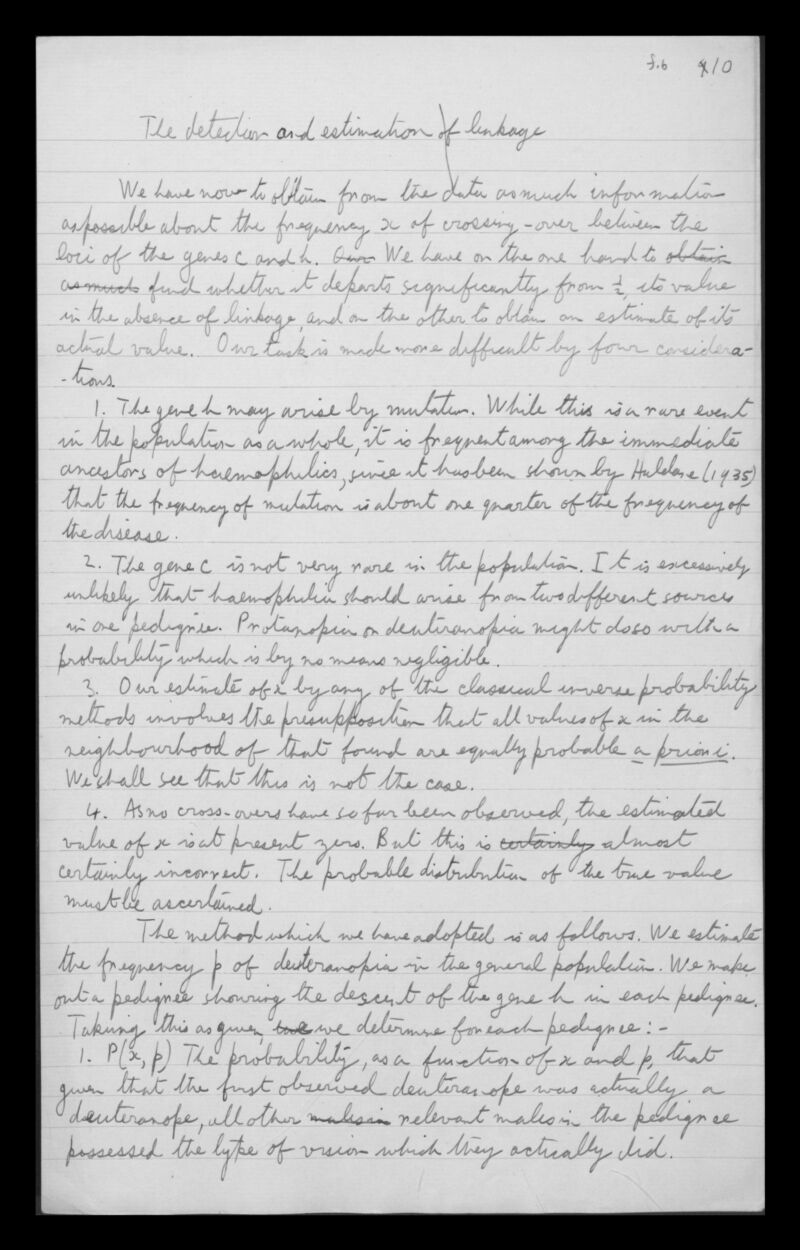 f.6 10
The detection and estimation of linkage
We have now to obtain from the data as much information
as possible about the frequency x of crossing-over between the
loci of the genes c and h. Our We have on the one hand to obtain
as much find whether it departs significantly from ½, its value
in the absence of linkage, and on the other to obtain an estimate of its
actual value. Our task is made more difficult by four considera-
-tions.
1. The gene h may arise by mutation. While this is a rare event
in the population as a whole, it is frequent among the immediate
ancestors of haemophilics, since it has been shown by Haldane (1935)
that the frequency of mutation is about one quarter of the frequency of
the disease.
2. The gene c is not very rare in the population. It is excessively
unlikely that haemophilia should arise from two different sources
in one pedigree. Protanopia or deuteranopia might do so with a
probability which is by no means negligible.
3. Our estimate of x by any of the classical inverse probability
methods involves the presupposition that all values of x in the
neighbourhood of that found are equally probable a priori.
We shall see that this is not the case.
4. As no cross-overs have so far been observed, the estimated
value of x is at present zero. But this is certainly almost
certainly incorrect. The probable distribution of the true value
must be ascertained.
The method which we have adopted is as follows. We estimate
the frequency p of deuteranopia in the general population. We make
out a pedigree showing the descent of the gene h in each pedigree.
Taking this as given, we determine for each pedigree:-
1. P(x, p) The probability, as a function of x and p, that
given that the first observed deuteranope was actually a
deuteranope, all other males in relevant males in the pedigree
possessed the type of vision which they actually did.